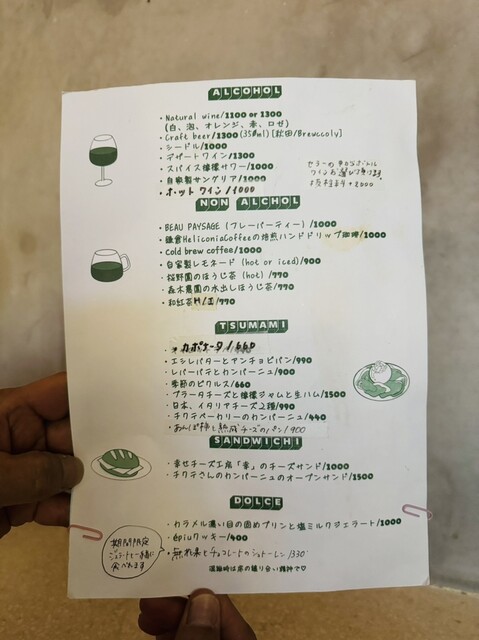 ALCOHOL
・Natural wine/1100 or 1300
(白、泡、オレンジ、赤、ロゼ)
・Craft beer/1300(350ml)[秋田/Brewccoly]
・シードル/1000
・デザートワイン/1300
・スパイス檸檬サワー/1000
・自家製サングリア/1000
・ホットワイン/1000
NON ALCHOL
・BEAU PAYSAGE (フレーバーティー)/1000
・鎌倉HeliconiaCoffeeの焙煎ハンドドリップ珈琲/1000
・Cold brew coffee/1000
・自家製レモネード (hot or iced)/900
・桜野園のほうじ茶 (hot) /770
・森木農園の水出しほうじ茶/770
・和紅茶H/I/770
TSUMAMI
・カポナータ/660
・エシレバターとアンチョビパン/990
・レバーパテとカンパーニュ/900
・季節のピクルス/660
・ブラータチーズと檸檬ジャムと生ハム/1500
・日本、イタリアチーズ2種/990
・チクテベーカリーのカンパーニュ/440
・あんぽ柿と熟成チーズのパン/900
SANDWICHI
・幸せチーズ工房「幸」のチーズサンド/1000
・チクテさんのカンパーニュのオープンサンド/1500
DOLCE
・カラメル濃い目の固めプリンと塩ミルクジェラート/1000
・6piuクッキー/400
期間限定
ジェラートと一緒に
食べれます
・無花果とチョコレートのシュトーレン/330
混雑時は席の譲り合い精神で♡